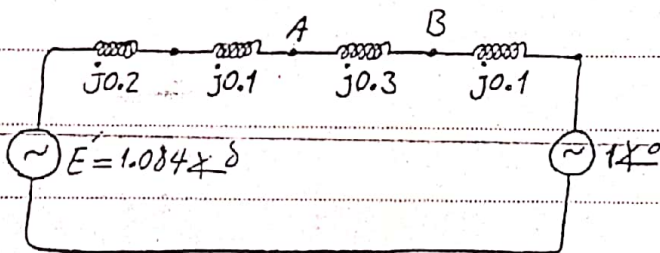 A B
j0.2 j0.1 j0.3 j0.1
~ E' = 1.084∠δ ~ 1∠0